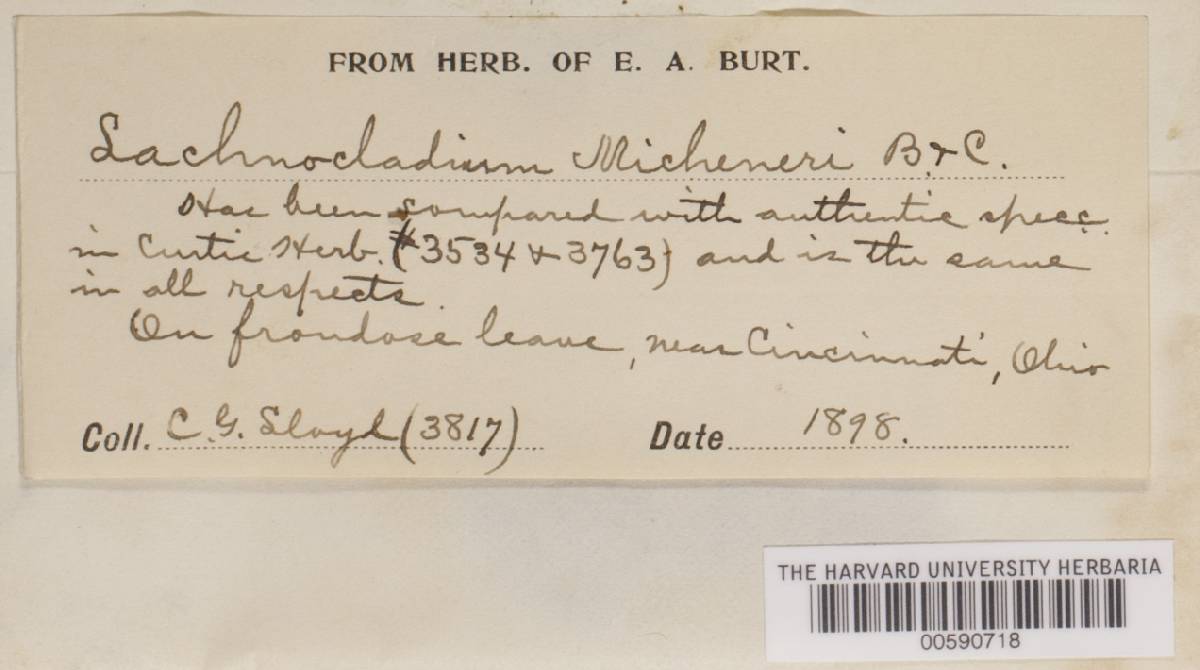 FROM HERB. OF E. A. BURT.
Lachnocladium Micheneri B. & C.
Has been compared with authentic specc.
in Curtis Herb. (#3534 & 3763) and is the same
in all respects.
On frondose leaves, near Cincinnati, Ohio
Coll. C. G. Lloyd (3817) Date 1898.
THE HARVARD UNIVERSITY HERBARIA
00590718